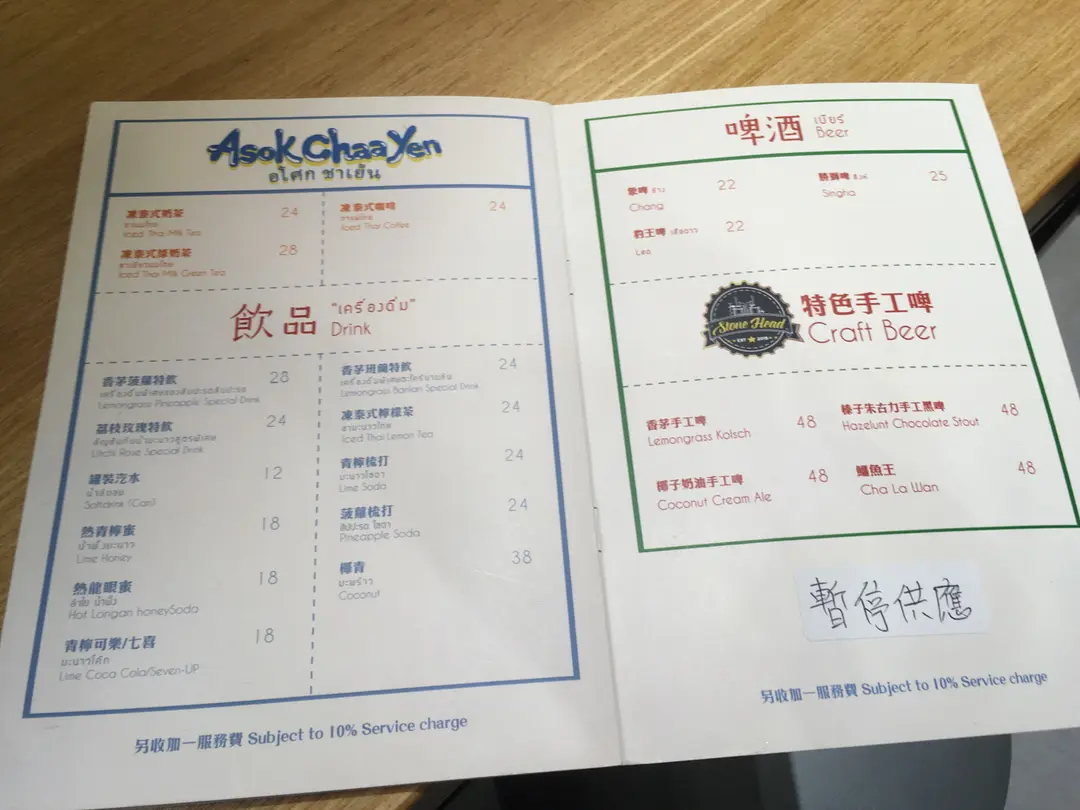 Asok Chaa Yen
อโศก ชาเย็น
凍泰式奶茶 24
ชานมไทย
Iced Thai Milk Tea
凍泰式綠奶茶 28
ชาเขียวนมไทย
Iced Thai Milk Green Tea
凍泰式咖啡 24
Iced Thai Coffee
飲品 "เครื่องดื่ม"
Drink
香茅菠蘿特飲 28
Lemongrass Pineapple Special Drink
荔枝玫瑰特飲 24
Litchi Rose Special Drink
罐裝汽水 12
น้ำอัดลม
Softdrink (Can)
熱青檸蜜 18
น้ำผึ้งมะนาว
Lime Honey
熱龍眼蜜 18
ลำไย น้ำผึ้ง
Hot Longan honeySoda
青檸可樂/七喜 18
มะนาวโค้ก
Lime Coca Cola/Seven-UP
香茅班蘭特飲 24
Lemongrass Banlan Special Drink
凍泰式檸檬茶 24
ชามะนาวไทย
Iced Thai Lemon Tea
青檸梳打 24
มะนาวโซดา
Lime Soda
菠蘿梳打 24
สับปะรด โซดา
Pineapple Soda
椰青 38
มะพร้าว
Coconut
另收加一服務費 Subject to 10% Service charge
啤酒 เบียร์
Beer
象啤 ช้าง 22
Chang
勝獅啤 สิงห์ 25
Singha
豹王啤 เสือดาว 22
Leo
Stone Head
EST 2015
特色手工啤
Craft Beer
香茅手工啤 48
Lemongrass Kolsch
榛子朱古力手工黑啤 48
Hazelunt Chocolate Stout
椰子奶油手工啤 48
Coconut Cream Ale
鱷魚王 48
Cha La Wan
暫停供應
另收加一服務費 Subject to 10% Service charge